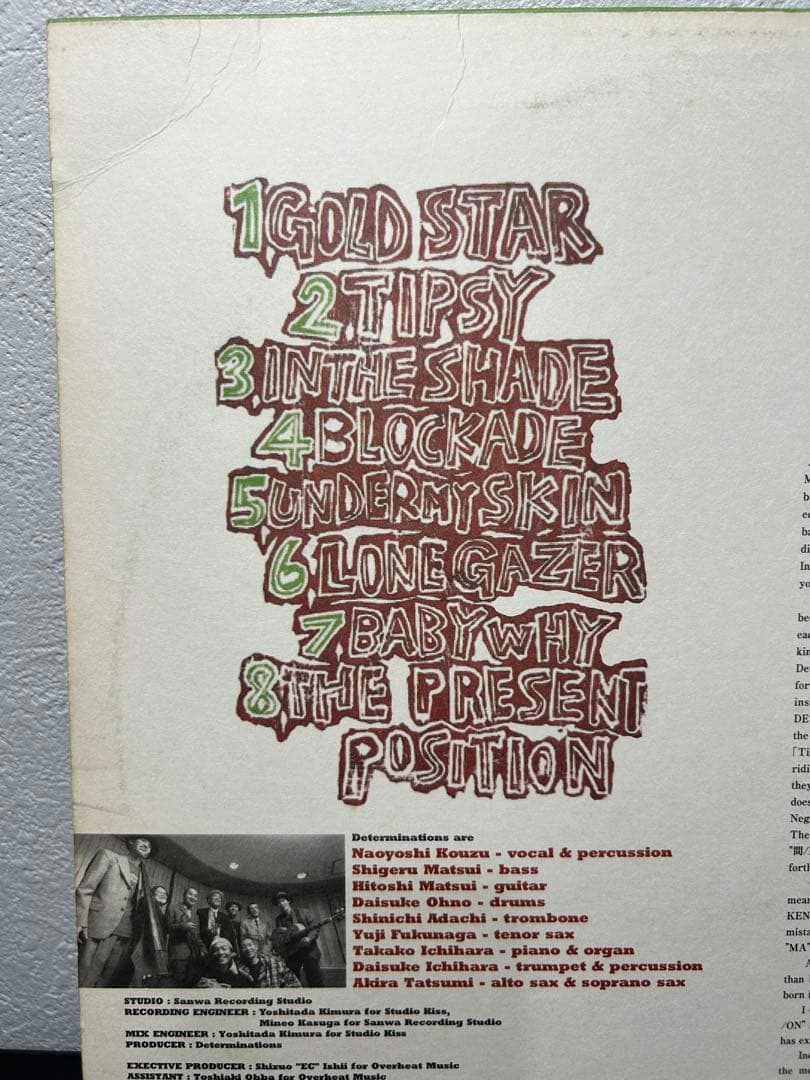 1 GOLD STAR
2 TIPSY
3 IN THE SHADE
4 BLOCKADE
5 UNDER MY SKIN
6 LONE GAZER
7 BABY WHY
8 THE PRESENT
POSITION
Determinations are
Naoyoshi Kouzu - vocal & percussion
Shigeru Matsui - bass
Hitoshi Matsui - guitar
Daisuke Ohno - drums
Shinichi Adachi - trombone
Yuji Fukunaga - tenor sax
Takako Ichihara - piano & organ
Daisuke Ichihara - trumpet & percussion
Akira Tatsumi - alto sax & soprano sax
STUDIO : Sanwa Recording Studio
RECORDING ENGINEER : Yoshitada Kimura for Studio Kiss,
Mineo Kasuga for Sanwa Recording Studio
MIX ENGINEER : Yoshitada Kimura for Studio Kiss
PRODUCER : Determinations
EXECTIVE PRODUCER : Shizuo "EC" Ishii for Overheat Music
ASSISTANT : Toshiaki Ohba for Overheat Music
M
b
ba
di
In
yo
be
eac
kin
De
for
ins
DE
the
「Ti
ridi
they
does
Neg
The
"間/
forth
mean
KEN
mista
"MA"
A
than
born i
I
/ON"
has ex
Inc
the m